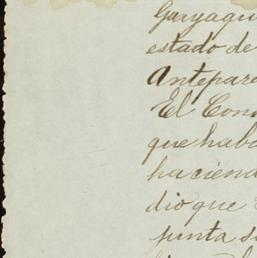 Guryaqui
estado de
Antepare
El Con
que habe
haciend
dio que
punta s